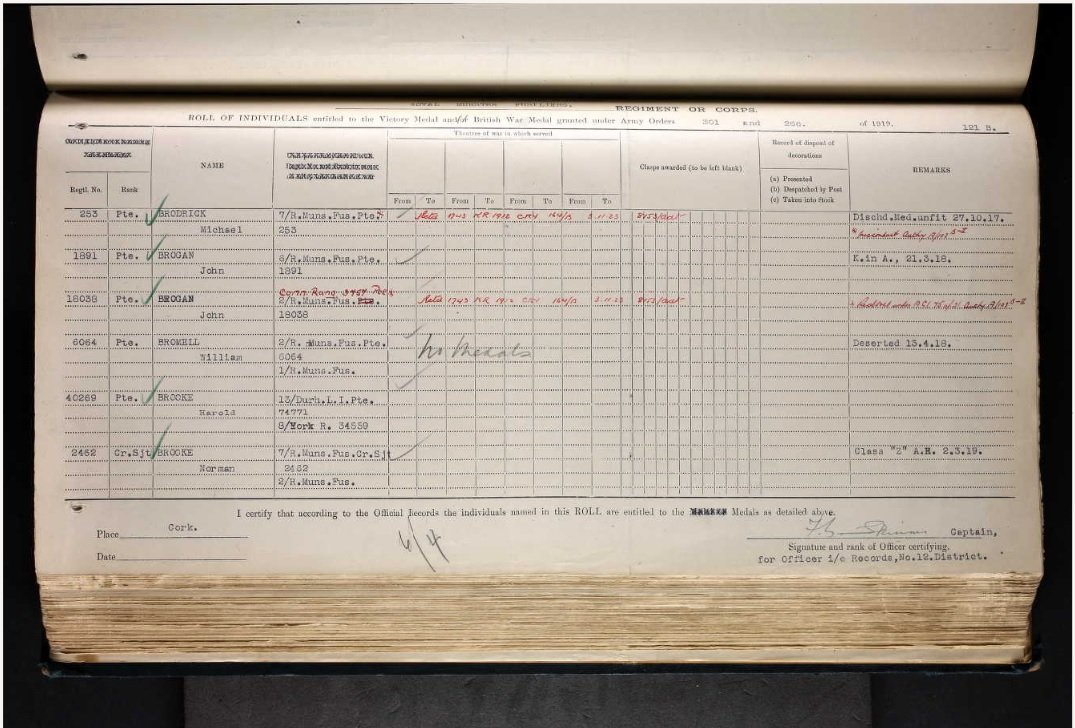 ROYAL MUNSTER FUSILIERS. REGIMENT OR CORPS.
ROLL OF INDIVIDUALS entitled to the Victory Medal and/or British War Medal granted under Army Orders 301 and 266. of 1919. 121 B.
Theatre of war in which served
Record of disposal of decorations
NAME
Clasps awarded (to be left blank)
REMARKS
(a) Presented
(b) Despatched by Post
(c) Taken into Stock
Regtl. No. Rank From To From To From To From To
253 Pte. BRODRICK 7/R.Muns.Fus.Pte. 1743 KR 1912 Dischd.Med.unfit 27.10.17.
Michael 253
1891 Pte. BROGAN 6/R.Muns.Fus.Pte. K.in A., 21.3.18.
John 1891
18038 Pte. BROGAN 2/R.Muns.Fus. Pte. 1743 KR
John 18038
6064 Pte. BROMELL 2/R. Muns.Fus.Pte. No Medals Deserted 13.4.18.
William 6064
1/R.Muns.Fus.
40269 Pte. BROOKE 13/Durh.L.I.Pte.
Harold 74771
8/York R. 34559
2462 Cr.Sjt BROOKE 7/R.Muns.Fus.Cr.Sjt Class "Z" A.R. 2.3.19.
Norman 2462
2/R.Muns.Fus.
I certify that according to the Official Records the individuals named in this ROLL are entitled to the Medals as detailed above.
Place Cork. Captain,
Signature and rank of Officer certifying.
Date for Officer i/c Records,No.12.District.